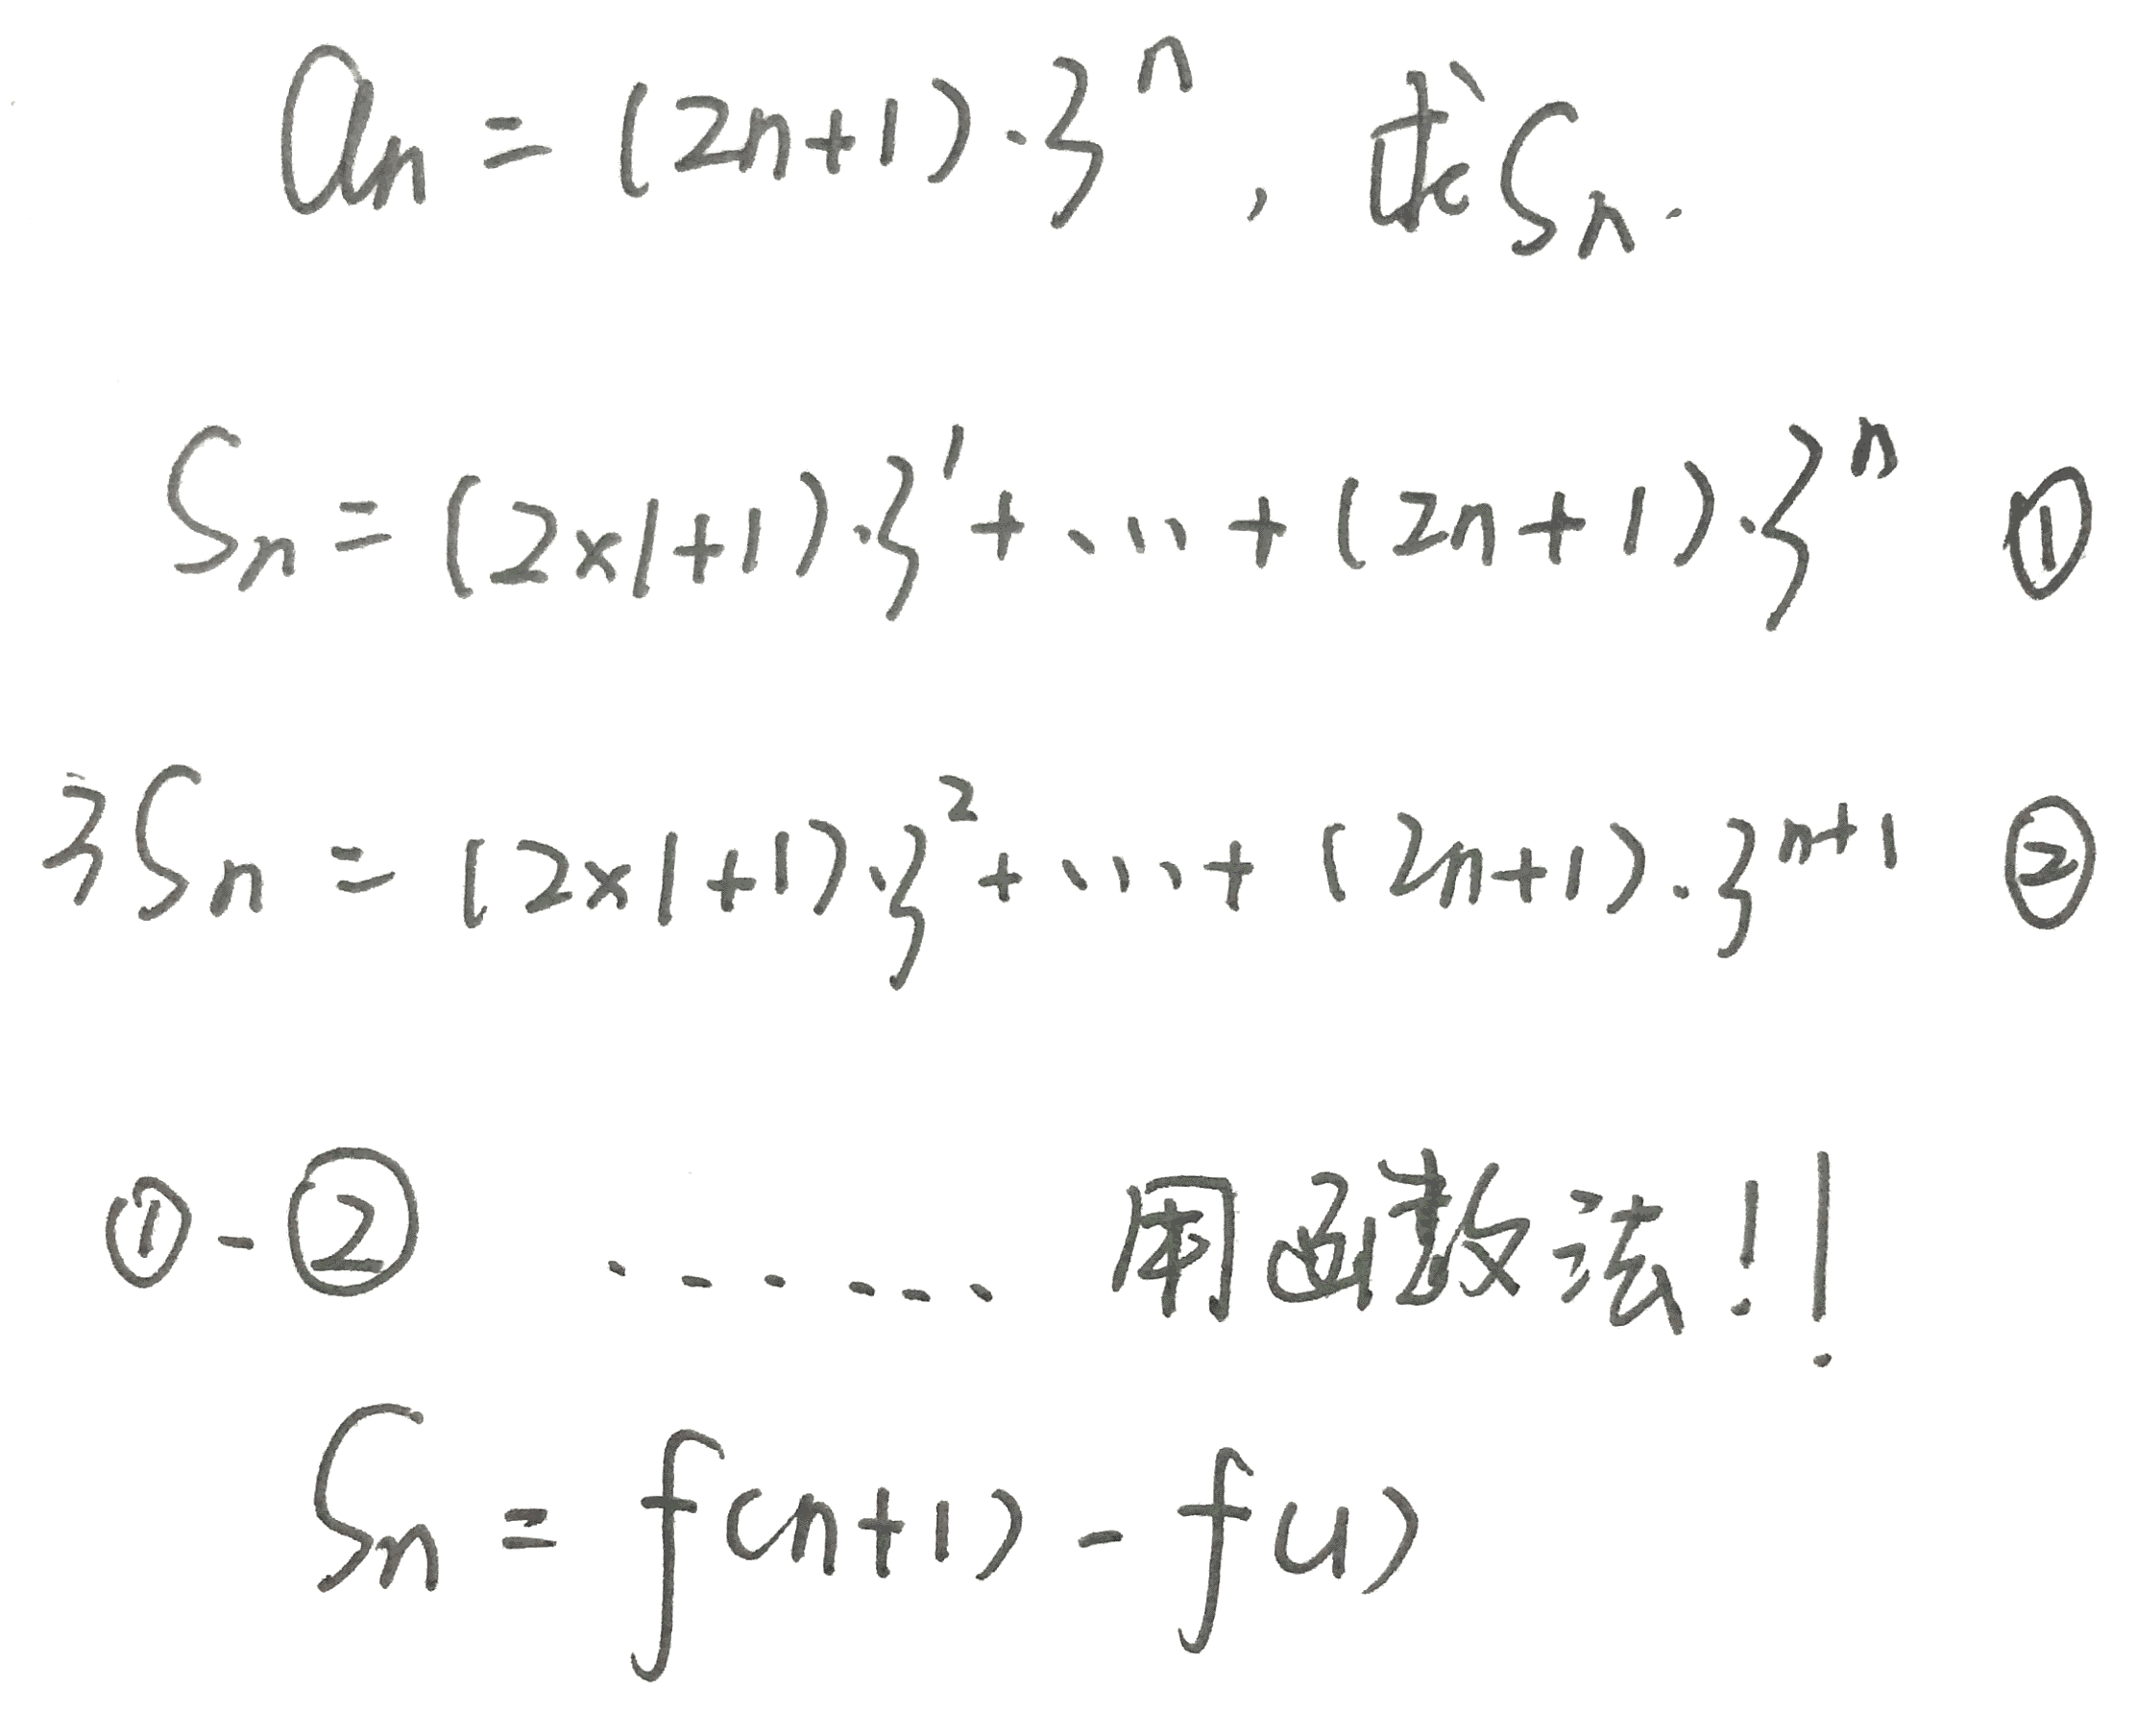 an = (2n+1)·3^n, 求Sn.
Sn = (2×1+1)·3^1 + ····· + (2n+1)·3^n ①
3Sn = (2×1+1)·3^2 + ····· + (2n+1)·3^{n+1} ②
①-② ······ 用函数法!!
Sn = f(n+1) - f(1)